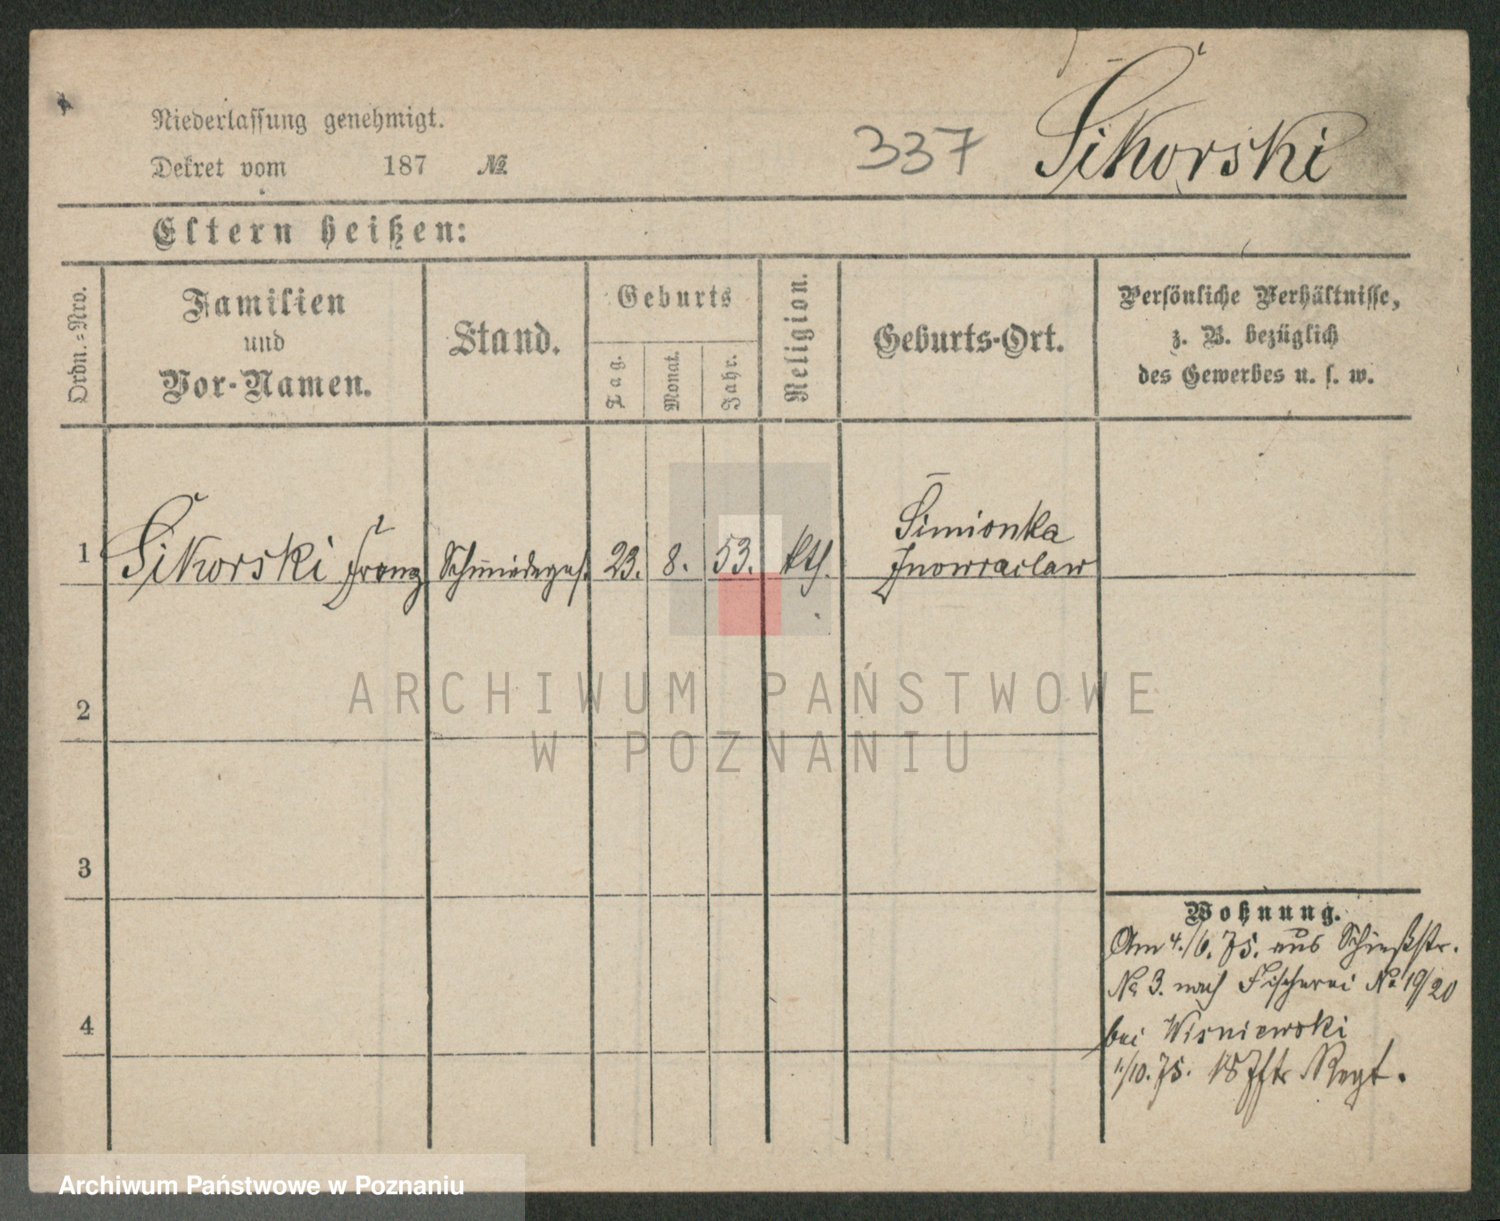 Niederlassung genehmigt.
Dekret vom 187 №
337 Sikorski
Eltern heißen:
Ordn.-Nro.
Familien
und
Vor-Namen.
Stand.
Geburts
Tag.
Monat.
Jahr.
Religion.
Geburts-Ort.
Persönliche Verhältnisse,
z. B. bezüglich
des Gewerbes u. s. w.
1 Sikorski Franz Schmiedeges. 23. 8. 53. kth. Simionka
Inowraclaw
2
3
4
Wohnung.
Am 4./6. 75. aus Schießstr.
No 3. nach Fischerei No 19/20
bei Wisniewski
1/10. 75. Regt.
ARCHIWUM PAŃSTWOWE
W POZNANIU
Archiwum Państwowe w Poznaniu